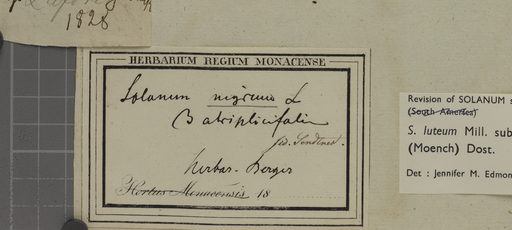 1828
HERBARIUM REGIUM MONACENSE
Solanum nigrum L
β atriplicifolium
fid. Sendtner.
herbar. Berger
Hortus Monacensis 18
Revision of SOLANUM s
(South America)
S. luteum Mill. sub
(Moench) Dost.
Det : Jennifer M. Edmon